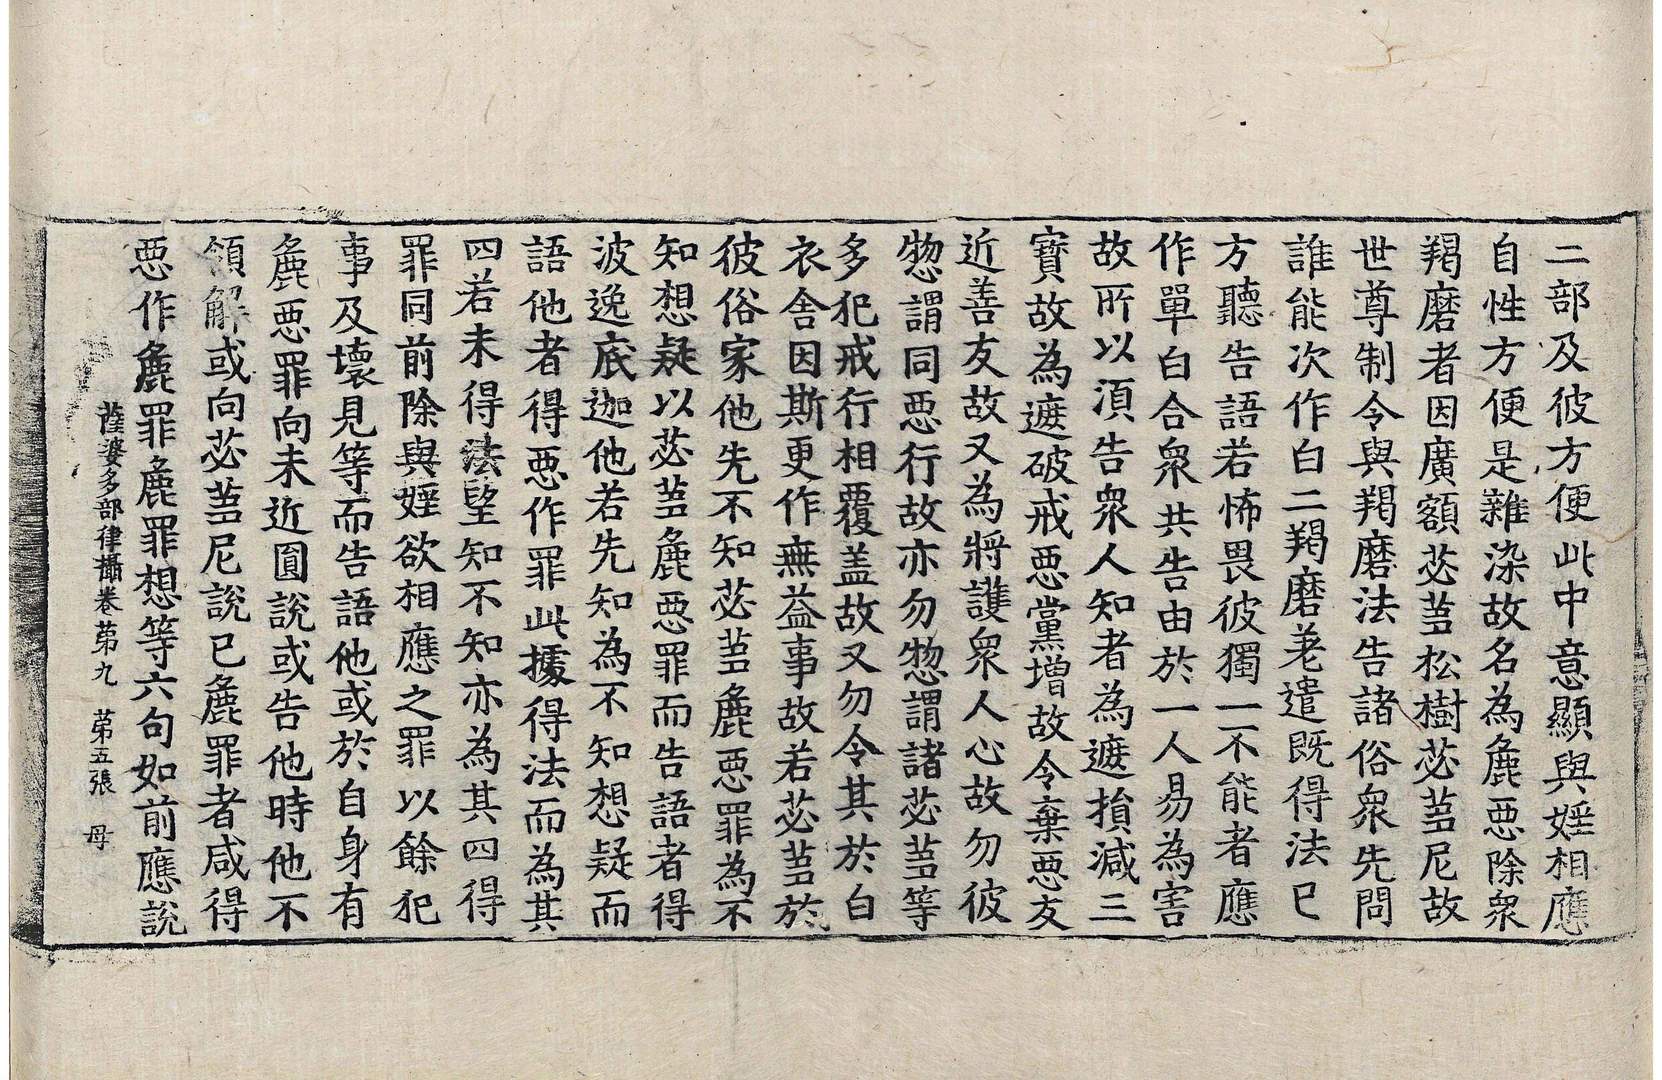 二部及彼方便此中意顯與婬相應
自性方便是雜染故名為麁惡除衆
羯磨者因廣額苾蒭松樹苾蒭尼故
世尊制令與羯磨法告諸俗衆先問
誰能次作白二羯磨差遣既得法已
方聽告語若怖畏彼獨一不能者應
作單白合衆共告由於一人易為害
故所以湏告衆人知者為遮損減三
寳故為遮破戒惡黨增故令棄惡友
近善友故又為將護衆人心故勿彼
惣謂同惡行故亦勿惣謂諸苾蒭等
多犯戒行相覆盖故又勿令其於白
衣舍因斯更作無益事故若苾蒭於
彼俗家他先不知苾蒭麁惡罪為不
知想疑以苾蒭麁惡罪而告語者得
波逸底迦他若先知為不知想疑而
語他者得惡作罪此據得法而為其
四若未得法望知不知亦為其四得
罪同前除與婬欲相應之罪以餘犯
事及壞見等而告語他或於自身有
麁惡罪向未近圓說或告他時他不
領解或向苾蒭尼說已麁罪者咸得
惡作麁罪麁罪想等六句如前應說
薩婆多部律攝卷苐九 苐五張 母